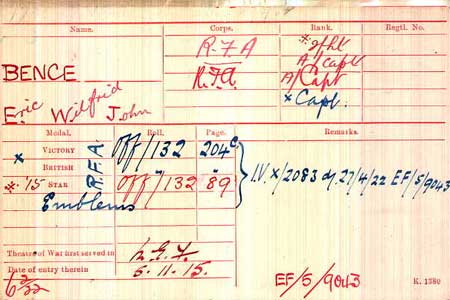 Name. Corps. Rank. Regtl. No.
R.F.A * 2/Lt
BENCE R.F.A. A/Capt
A/Capt
Eric Wilfrid John x Capt.
Medal. Roll. Page. Remarks.
x VICTORY R.F.A. Off/132 204c
BRITISH " " IV. x/2083 d/. 27/4/22 EF/5/9043
* '15 STAR Off/132 89
Emblems
Theatre of War first served in
Date of entry therein 5.11.15.
EF/5/9043 K. 1380